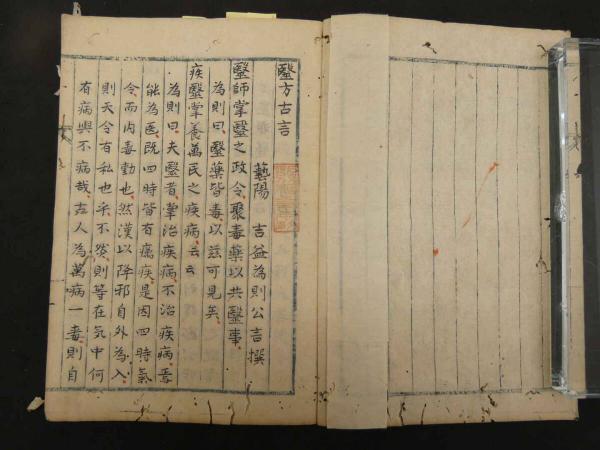 醫方古言
藝陽 吉益為則公言撰
醫師掌醫之政令聚毒藥以共醫事
為則曰醫藥皆毒以茲可見矣
疾醫掌養萬民之疾病云云
為則曰夫醫者掌治疾病不治疾病焉
能為医既四時皆有癘疾是因四時氣
令而内毒動也然漢以降邪自外為入
則天令有私也乎不然則等在気中何
有病與不病哉吉人為萬病一毒則自